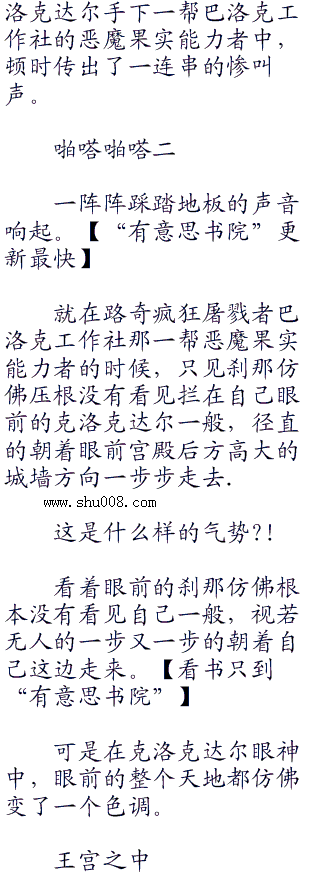 洛克达尔手下一帮巴洛克工
作社的恶魔果实能力者中，
顿时传出了一连串的惨叫
声。
啪嗒啪嗒二
一阵阵踩踏地板的声音
响起。【“有意思书院”更
新最快】
就在路奇疯狂屠戮者巴
洛克工作社那一帮恶魔果实
能力者的时候，只见刹那仿
佛压根没有看见拦在自己眼
前的克洛克达尔一般，径直
的朝着眼前宫殿后方高大的
城墙方向一步步走去.
www.shu008.com
这是什么样的气势?!
看着眼前的刹那仿佛根
本没有看见自己一般，视若
无人的一步又一步的朝着自
己这边走来。【看书只到
“有意思书院”】
可是在克洛克达尔眼神
中，眼前的整个天地都仿佛
变了一个色调。
王宫之中